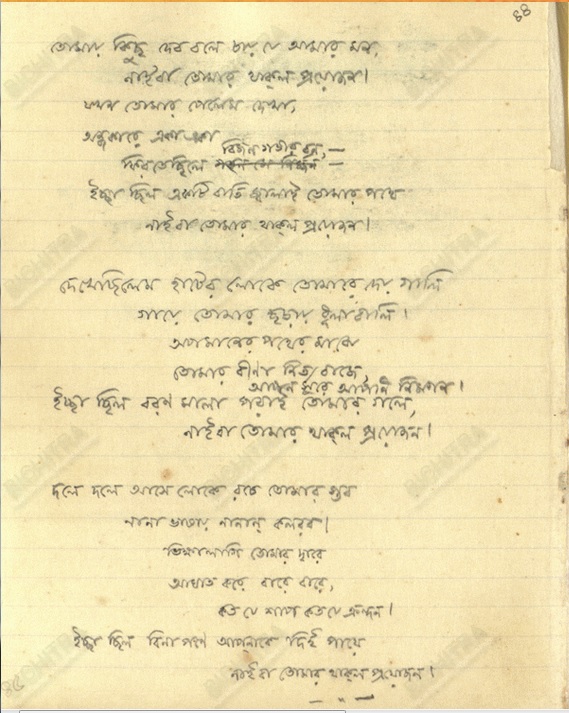 ৪৪
তোমায় কিছু দেব বলে চায় যে আমার মন,
নাইবা তোমার থাক্‌ল প্রয়োজন।
যখন তোমার পেলেম দেখা,
অন্ধকারে একা একা
বিজন গভীর বন, —
ফিরতেছিলে —
ইচ্ছা ছিল একটি বাতি জ্বালাই তোমার পথে
নাইবা তোমার থাক্‌ল প্রয়োজন।
দেখেছিলেম হাটের লোকে তোমারে দেয় গালি
গায়ে তোমার ছড়ায় ধুলাবালি।
অপমানের পথের মাঝে
তোমার বীণা নিত্য বাজে,
আপন সুরে আপনি নিমগন।
ইচ্ছা ছিল বরণ মালা পরাই তোমার গলে,
নাইবা তোমার থাক্‌ল প্রয়োজন।
দলে দলে আসে লোকে রচে তোমার স্তব
নানা ভাষায় নানান্ কলরব।
ভিক্ষালাগি তোমার দ্বারে
আঘাত করে বারে বারে,
কত যে শাপ কত যে ক্রন্দন।
ইচ্ছা ছিল বিনা পণে আপনাকে দিই পায়ে
নাইবা তোমার থাক্‌ল প্রয়োজন।
BICHITRA